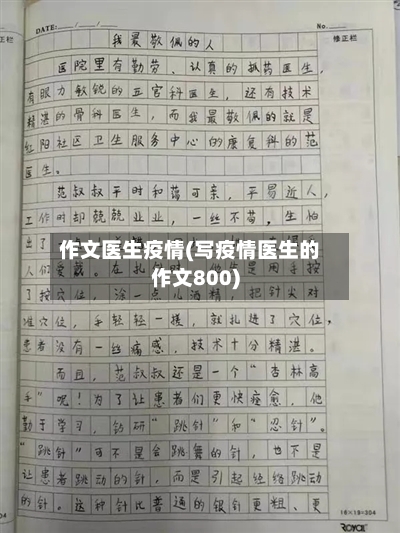 DATE: / / No.
修正栏
我最敬佩的人
医院里有勤劳、认真的抓药医生,
有眼力敏锐的五官科医生,还有技术
精湛的骨科医生,而我最敬佩的就是
红阳社区卫生服务中心的康复科的范
医生。
范叔叔平时和蔼可亲,平易近人,
工作时却兢兢业业,一丝不苟,生怕
出了
作文医生疫情(写疫情医生的
作文800)
人们爱戴。在扎针时,他
是用手按
了按穴位,涂一点儿酒精,把针尖对
准穴位,手轻轻一搓,就扎进了穴位,
患者没有一丝痛感,技术十分精湛。
而且,范叔叔还是一个“杏林高
手”呢!为了让患者们更快痊愈,他
勤于学习,钻研“跳针”和“忍针”。
“跳针”可不是会跳舞的针,也不是
让患者跳动的针,而是引起经络跳动
的针。这种针比普通的银针更粗、更
16×19=304
ROYAL